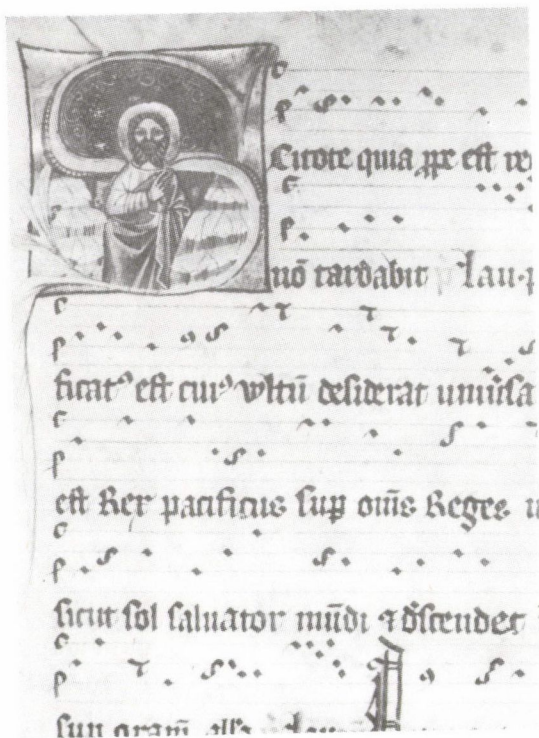 Scitote quia ꝓpe est re
nō tardabit lau
ficatꝰ est cuiꝰ vultū desiderat uniu̅sa
est Rex pacificus sup om̅s Reges
sicut sol saluator mūdi ⁊ descendet
sup